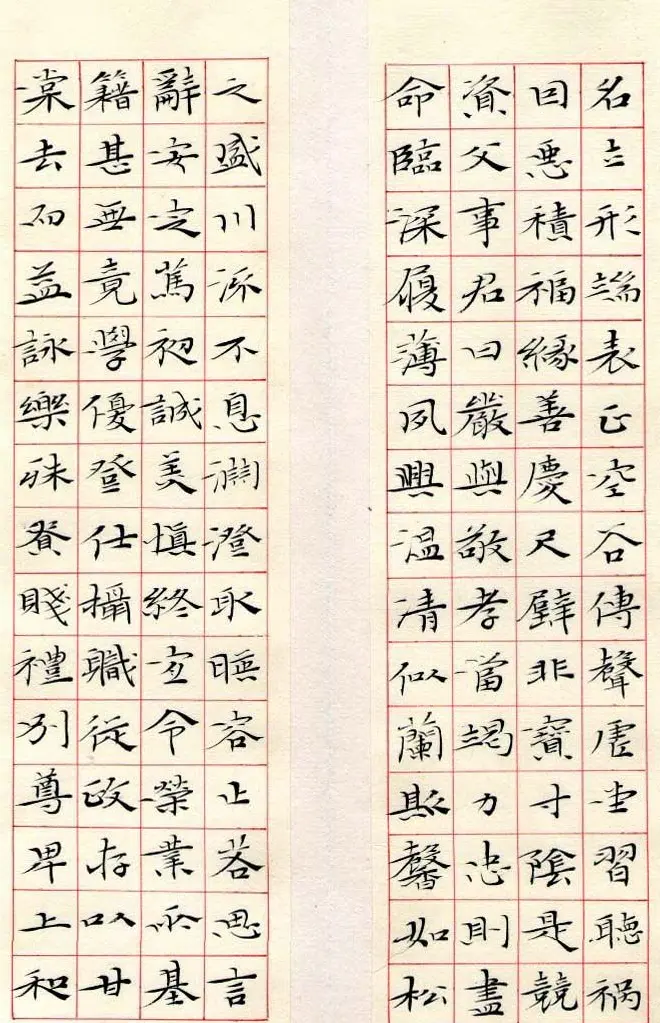 名立形端表正空谷傳聲虚堂習聽禍
因惡積福緣善慶尺璧非寶寸陰是競
資父事君曰嚴與敬孝當竭力忠則盡
命臨深履薄夙興温凊似蘭斯馨如松
之盛川流不息淵澄取暎容止若思言
辭安定篤初誠美慎終宜令榮業所基
籍甚無竟學優登仕攝職從政存以甘
棠去而益詠樂殊貴賤禮別尊卑上和